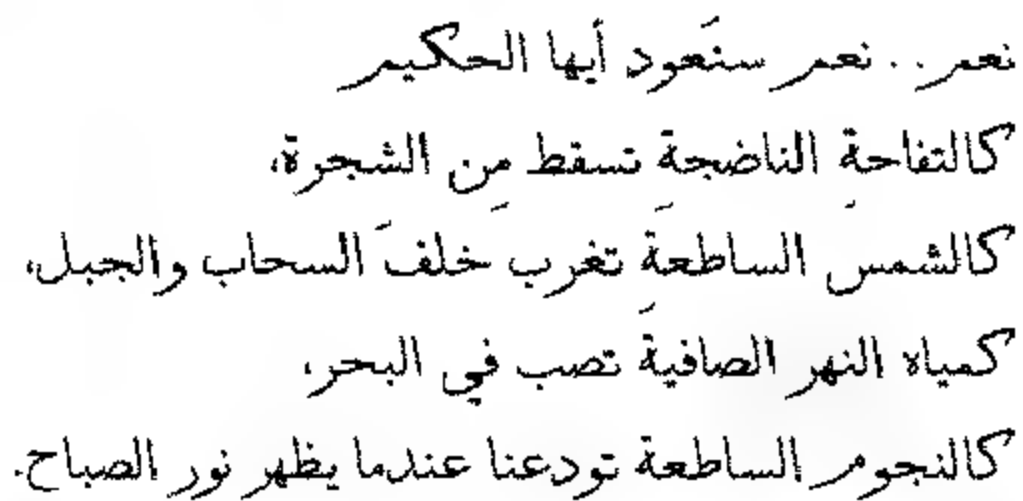 نعم.. نعم سنَعود أيها الحكيم
كالتفاحةِ الناضجة تسقط مِن الشجرة،
كالشمس الساطعَة تغرب خَلفَ السحاب والجبل،
كمياه النهر الصافيَة تصب في البحر،
كالنجوم الساطعة تودعنا عندما يظهر نور الصباح.